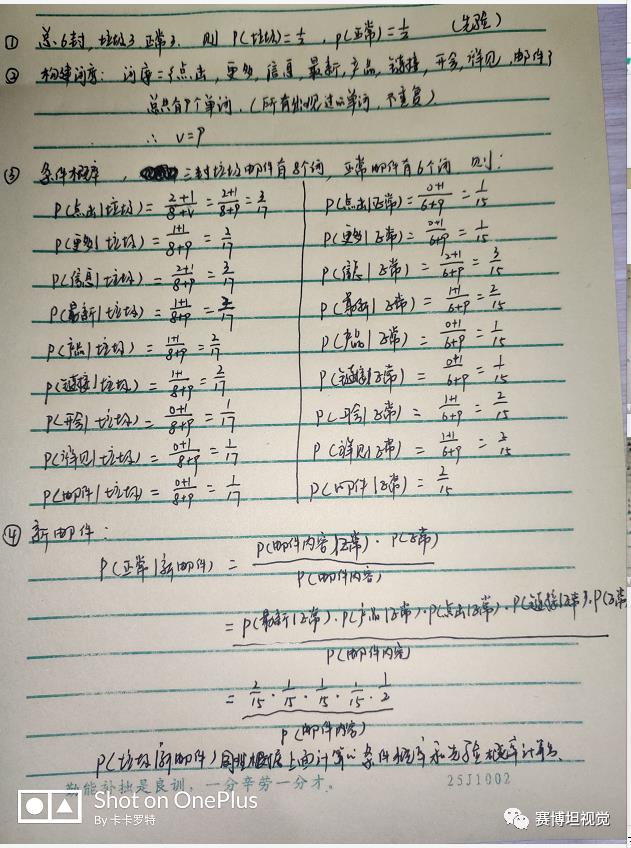 ① 总6封,垃圾3 正常3. 则 P(垃圾)=1/2, P(正常)=1/2 (先验)
② 构建词库: 词库={点击,更多,信息,最新,产品,链接,开会,详见,邮件}
总共有9个单词.(所有出现过的单词,不重复)
∴ V=9
③ 条件概率, 三封垃圾邮件有8个词,正常邮件有6个词 则:
P(点击|垃圾)= 2+1/8+V = 2+1/8+9 = 3/17 P(点击|正常)= 0+1/6+9 = 1/15
P(更多|垃圾)= 1+1/8+9 = 2/17 P(更多|正常)= 0+1/6+9 = 1/15
P(信息|垃圾)= 2+1/8+9 = 3/17 P(信息|正常)= 2+1/6+9 = 3/15
P(最新|垃圾)= 1+1/8+9 = 2/17 P(最新|正常)= 1+1/6+9 = 2/15
P(产品|垃圾)= 1+1/8+9 = 2/17 P(产品|正常)= 0+1/6+9 = 1/15
P(链接|垃圾)= 1+1/8+9 = 2/17 P(链接|正常)= 0+1/6+9 = 1/15
P(开会|垃圾)= 0+1/8+9 = 1/17 P(开会|正常)= 1+1/6+9 = 2/15
P(详见|垃圾)= 0+1/8+9 = 1/17 P(详见|正常)= 1+1/6+9 = 2/15
P(邮件|垃圾)= 0+1/8+9 = 1/17 P(邮件|正常)= 2/15
④ 新邮件:
P(正常|新邮件) = P(邮件内容|正常)·P(正常)
P(邮件内容)
= P(最新|正常)·P(产品|正常)·P(点击|正常)·P(链接|正常)·P(正常
P(邮件内容)
= 2/15 · 1/15 · 1/15 · 1/15 · 1/2
P(邮件内容)
P(垃圾|新邮件)同明根据上面计算的条件概率和先验概率计算出.
勤能补拙是良训,一分辛劳一分才。 25J1002
Shot on OnePlus
By 卡卡罗特
赛博坦视觉